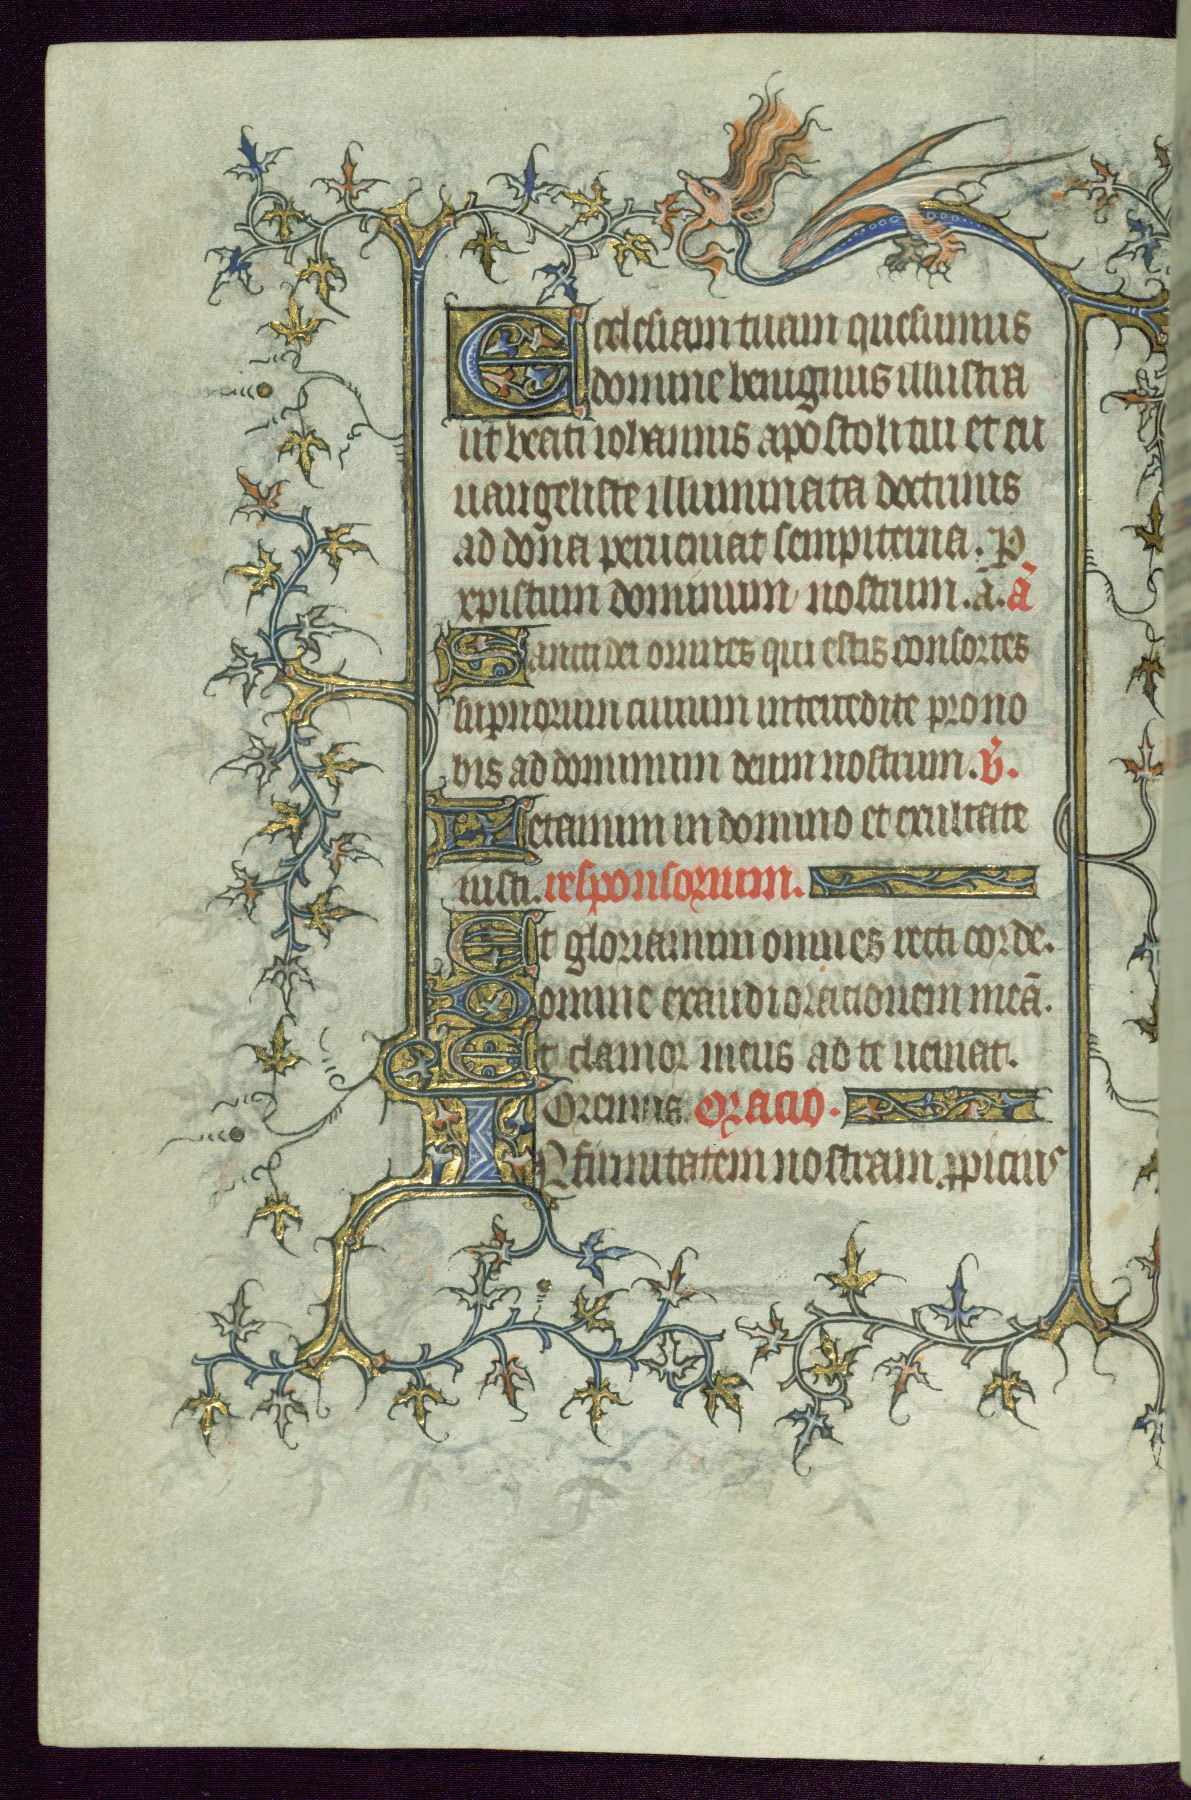 Ecclesiam tuam quesumus
domine benignus illustra
ut beati iohannis apostoli tui et eu
uangeliste illuminata doctrinis
ad dona perueniat sempiterna. P
xpistum dominum nostrum. a. ā
Sancti dei omnes qui estis consortes
supnorum ciuium intercedite pro no
bis ad dominum deum nostrum. v̄.
Letamini in domino et exultate
iusti. responsorium.
Et gloriamini omnes recti corde.
Domine exaudi orationem meā.
Et clamor meus ad te ueniat.
Oremus. Oracio.
INfirmitatem nostram ꝓpicius